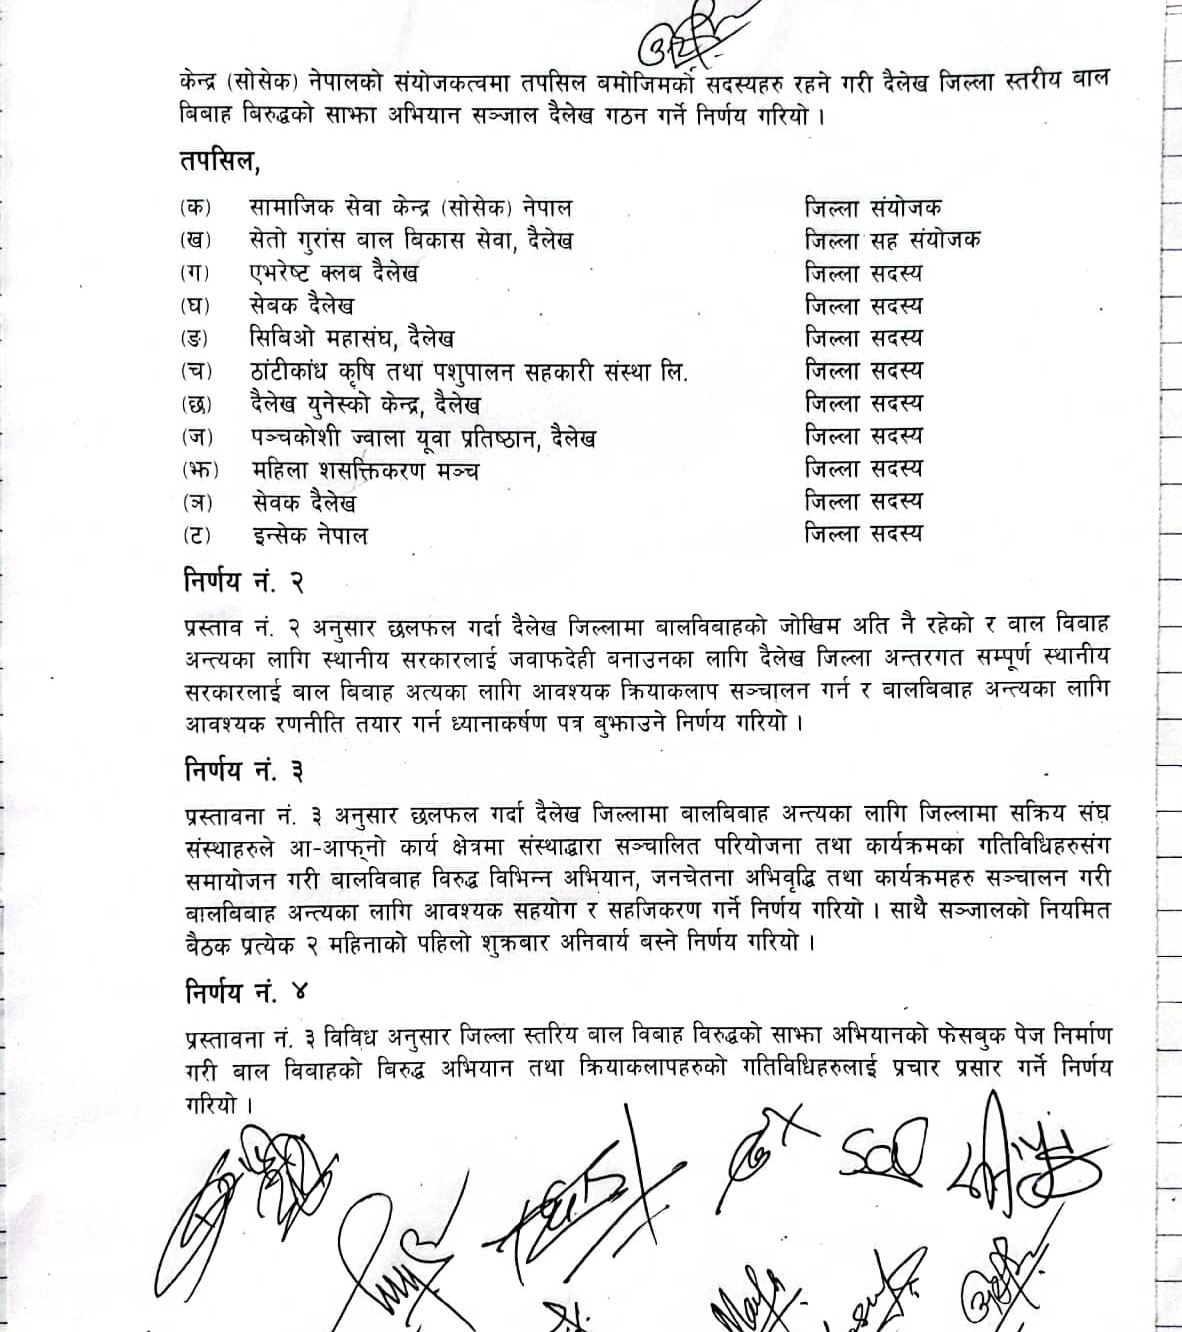 केन्द्र (सोसेक) नेपालको संयोजकत्वमा तपसिल बमोजिमको सदस्यहरु रहने गरी दैलेख जिल्ला स्तरीय बाल
बिबाह बिरुद्धको साझा अभियान सञ्जाल दैलेख गठन गर्ने निर्णय गरियो ।
तपसिल,
(क) सामाजिक सेवा केन्द्र (सोसेक) नेपाल जिल्ला संयोजक
(ख) सेतो गुरांस बाल बिकास सेवा, दैलेख जिल्ला सह संयोजक
(ग) एभरेष्ट क्लब दैलेख जिल्ला सदस्य
(घ) सेबक दैलेख जिल्ला सदस्य
(ङ) सिबिओ महासंघ, दैलेख जिल्ला सदस्य
(च) ठांटीकांध कृषि तथा पशुपालन सहकारी संस्था लि. जिल्ला सदस्य
(छ) दैलेख युनेस्को केन्द्र, दैलेख जिल्ला सदस्य
(ज) पञ्चकोशी ज्वाला यूवा प्रतिष्ठान, दैलेख जिल्ला सदस्य
(झ) महिला शसक्तिकरण मञ्च जिल्ला सदस्य
(ञ) सेवक दैलेख जिल्ला सदस्य
(ट) इन्सेक नेपाल जिल्ला सदस्य
निर्णय नं. २
प्रस्ताव नं. २ अनुसार छलफल गर्दा दैलेख जिल्लामा बालबिबाहको जोखिम अति नै रहेको र बाल विबाह
अन्त्यका लागि स्थानीय सरकारलाई जवाफदेही बनाउनका लागि दैलेख जिल्ला अन्तरगत सम्पूर्ण स्थानीय
सरकारलाई बाल बिवाह अत्यका लागि आवश्यक क्रियाकलाप सञ्चालन गर्न र बालबिवाह अन्त्यका लागि
आवश्यक रणनीति तयार गर्न ध्यानाकर्षण पत्र बुझाउने निर्णय गरियो ।
निर्णय नं. ३
प्रस्तावना नं. ३ अनुसार छलफल गर्दा दैलेख जिल्लामा बालबिबाह अन्त्यका लागि जिल्लामा सक्रिय संघ
संस्थाहरुले आ-आफ्नो कार्य क्षेत्रमा संस्थाद्धारा सञ्चालित परियोजना तथा कार्यक्रमका गतिविधिहरुसंग
समायोजन गरी बालविबाह विरुद्ध विभिन्न अभियान, जनचेतना अभिवृद्धि तथा कार्यक्रमहरु सञ्चालन गरी
बालबिबाह अन्त्यका लागि आवश्यक सहयोग र सहजिकरण गर्ने निर्णय गरियो । साथै सञ्जालको नियमित
बैठक प्रत्येक २ महिनाको पहिलो शुक्रबार अनिवार्य बस्ने निर्णय गरियो ।
निर्णय नं. ४
प्रस्तावना नं. ३ विविध अनुसार जिल्ला स्तरिय बाल विबाह विरुद्धको साझा अभियानको फेसबुक पेज निर्माण
गरी बाल विबाहको बिरुद्ध अभियान तथा क्रियाकलापहरुको गतिविधिहरुलाई प्रचार प्रसार गर्ने निर्णय
गरियो ।